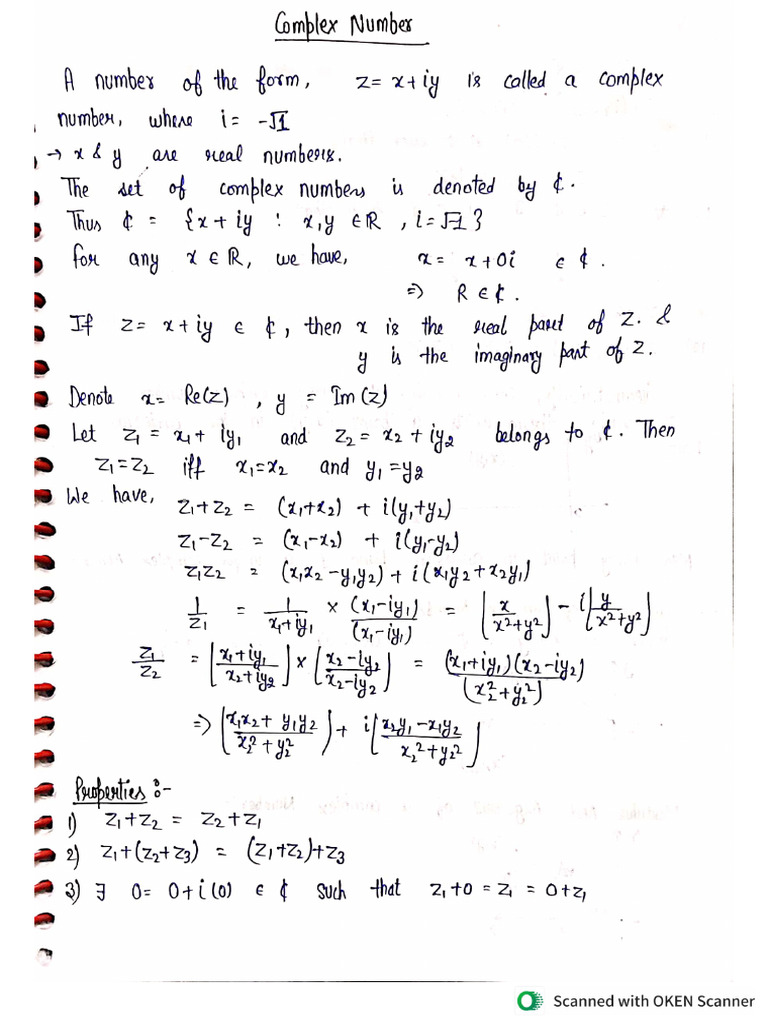 Complex Number
A number of the form, z = x + iy is called a complex
number, where i = -√1
→ x & y are real numbers.
The set of complex numbers is denoted by ₵.
Thus ₵ = {x + iy : x, y ∈ ℝ, i = √-1}
for any x ∈ ℝ, we have, x = x + 0i ∈ ₵.
=> R ∈ ₵.
If z = x + iy ∈ ₵, then x is the real part of Z. &
y is the imaginary part of Z.
Denote x = Re(z), y = Im(z)
Let z₁ = x₁ + iy₁ and z₂ = x₂ + iy₂ belongs to ₵. Then
z₁ = z₂ iff x₁ = x₂ and y₁ = y₂
We have, z₁ + z₂ = (x₁ + x₂) + i(y₁ + y₂)
z₁ - z₂ = (x₁ - x₂) + i(y₁ - y₂)
z₁z₂ = (x₁x₂ - y₁y₂) + i(x₁y₂ + x₂y₁)
1/z₁ = 1/(x₁ + iy₁) × (x₁ - iy₁)/(x₁ - iy₁) = (x/(x² + y²)) - i(y/(x² + y²))
z₁/z₂ = ((x₁ + iy₁)/(x₂ + iy₂)) × ((x₂ - iy₂)/(x₂ - iy₂)) = (x₁ + iy₁)(x₂ - iy₂)/(x₂² + y₂²)
=> ((x₁x₂ + y₁y₂)/(x₂² + y₂²)) + i((x₂y₁ - x₁y₂)/(x₂² + y₂²))
Properties :-
1) z₁ + z₂ = z₂ + z₁
2) z₁ + (z₂ + z₃) = (z₁ + z₂) + z₃
3) ∃ 0 = 0 + i(0) ∈ ₵ such that z₁ + 0 = z₁ = 0 + z₁
Scanned with OKEN Scanner